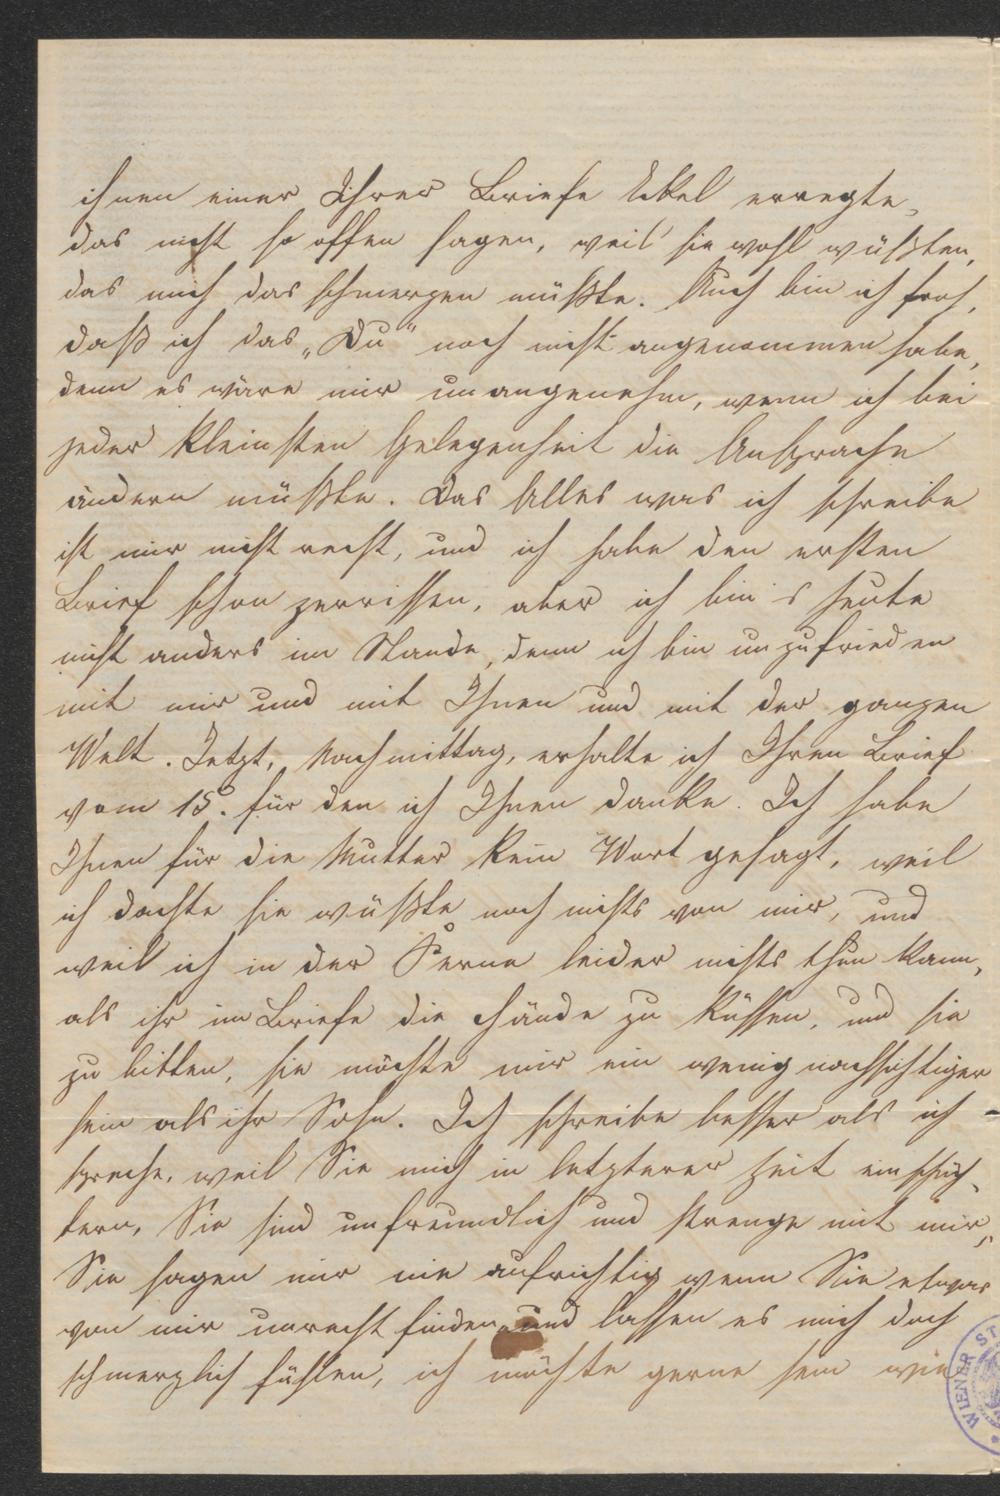 ihnen einer Ihrer Briefe Übel erregte,
das nicht so offen sagen, weil sie wohl wüßten,
das mich das schmerzen müßte. Auch bin ich froh,
daß ich das „Du" noch nicht angenommen habe,
denn es wäre mir unangenehm, wenn ich bei
jeder kleinsten Gelegenheit die Ansprache
ändern müßte. Das Alles was ich schreibe
ist mir nicht recht, und ich habe den ersten
Brief schon zerrissen, aber ich bin's heute
nicht anders im Stande, denn ich bin unzufrieden
mit mir und mit Ihnen und mit der ganzen
Welt. Jetzt, Nachmittag, erhalte ich Ihren Brief
vom 18. für den ich Ihnen danke. Ich habe
Ihnen für die Mutter kein Wort gesagt, weil
ich dachte sie wüßte noch nichts von mir, und
weil ich in der Ferne leider nichts thun kann,
als ihr im Briefe die Hände zu küssen, und sie
zu bitten, sie möchte mir ein wenig nachsichtiger
sein als ihr Sohn. Ich schreibe besser als ich
spreche, weil Sie mich in letzterer Zeit einschüch-
tern, Sie sind unfreundlich und strenge mit mir,
Sie sagen mir nie aufrichtig wenn Sie etwas
von mir unrecht finden, und lassen es mich doch
schmerzlich fühlen, ich möchte gerne sein wie
WIENER ST